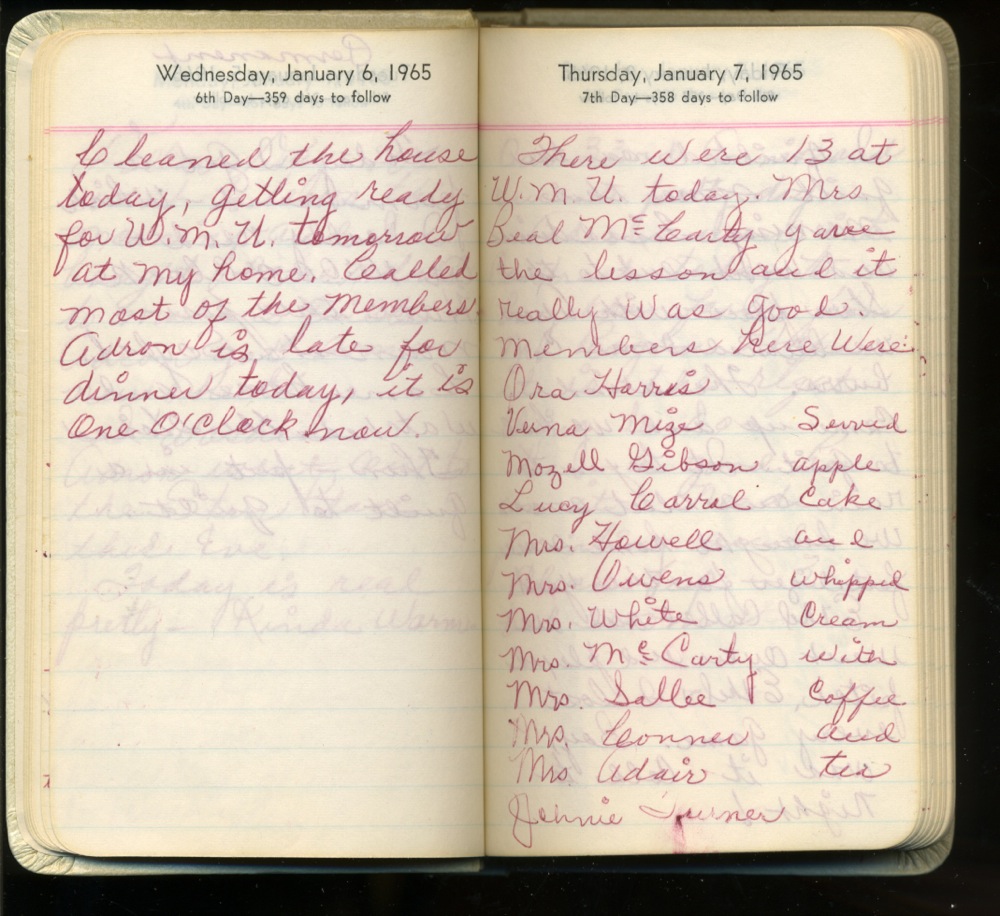 Wednesday, January 6, 1965
6th Day—359 days to follow
Cleaned the house
today, getting ready
for W.M.U. tomorrow
at my home. Called
most of the members.
Adron is late for
dinner today, it is
One O'Clock now.
Today is real
pretty - Kinda warm
Thursday, January 7, 1965
7th Day—358 days to follow
There were 13 at
W.M.U. today. Mrs.
Beal McCarty gave
the lesson and it
really was good.
members here were:
Ora Harris
Verna Mize Served
Mozell Gibson apple
Lucy Carrol Cake
Mrs. Howell and
Mrs. Owens whipped
Mrs. White Cream
Mrs. McCarty with
Mrs. Sallee Coffee
Mrs. Conner and
Mrs. Adair tea
Johnie Turner